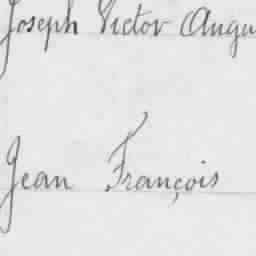 Joseph Victor Augu
Jean François